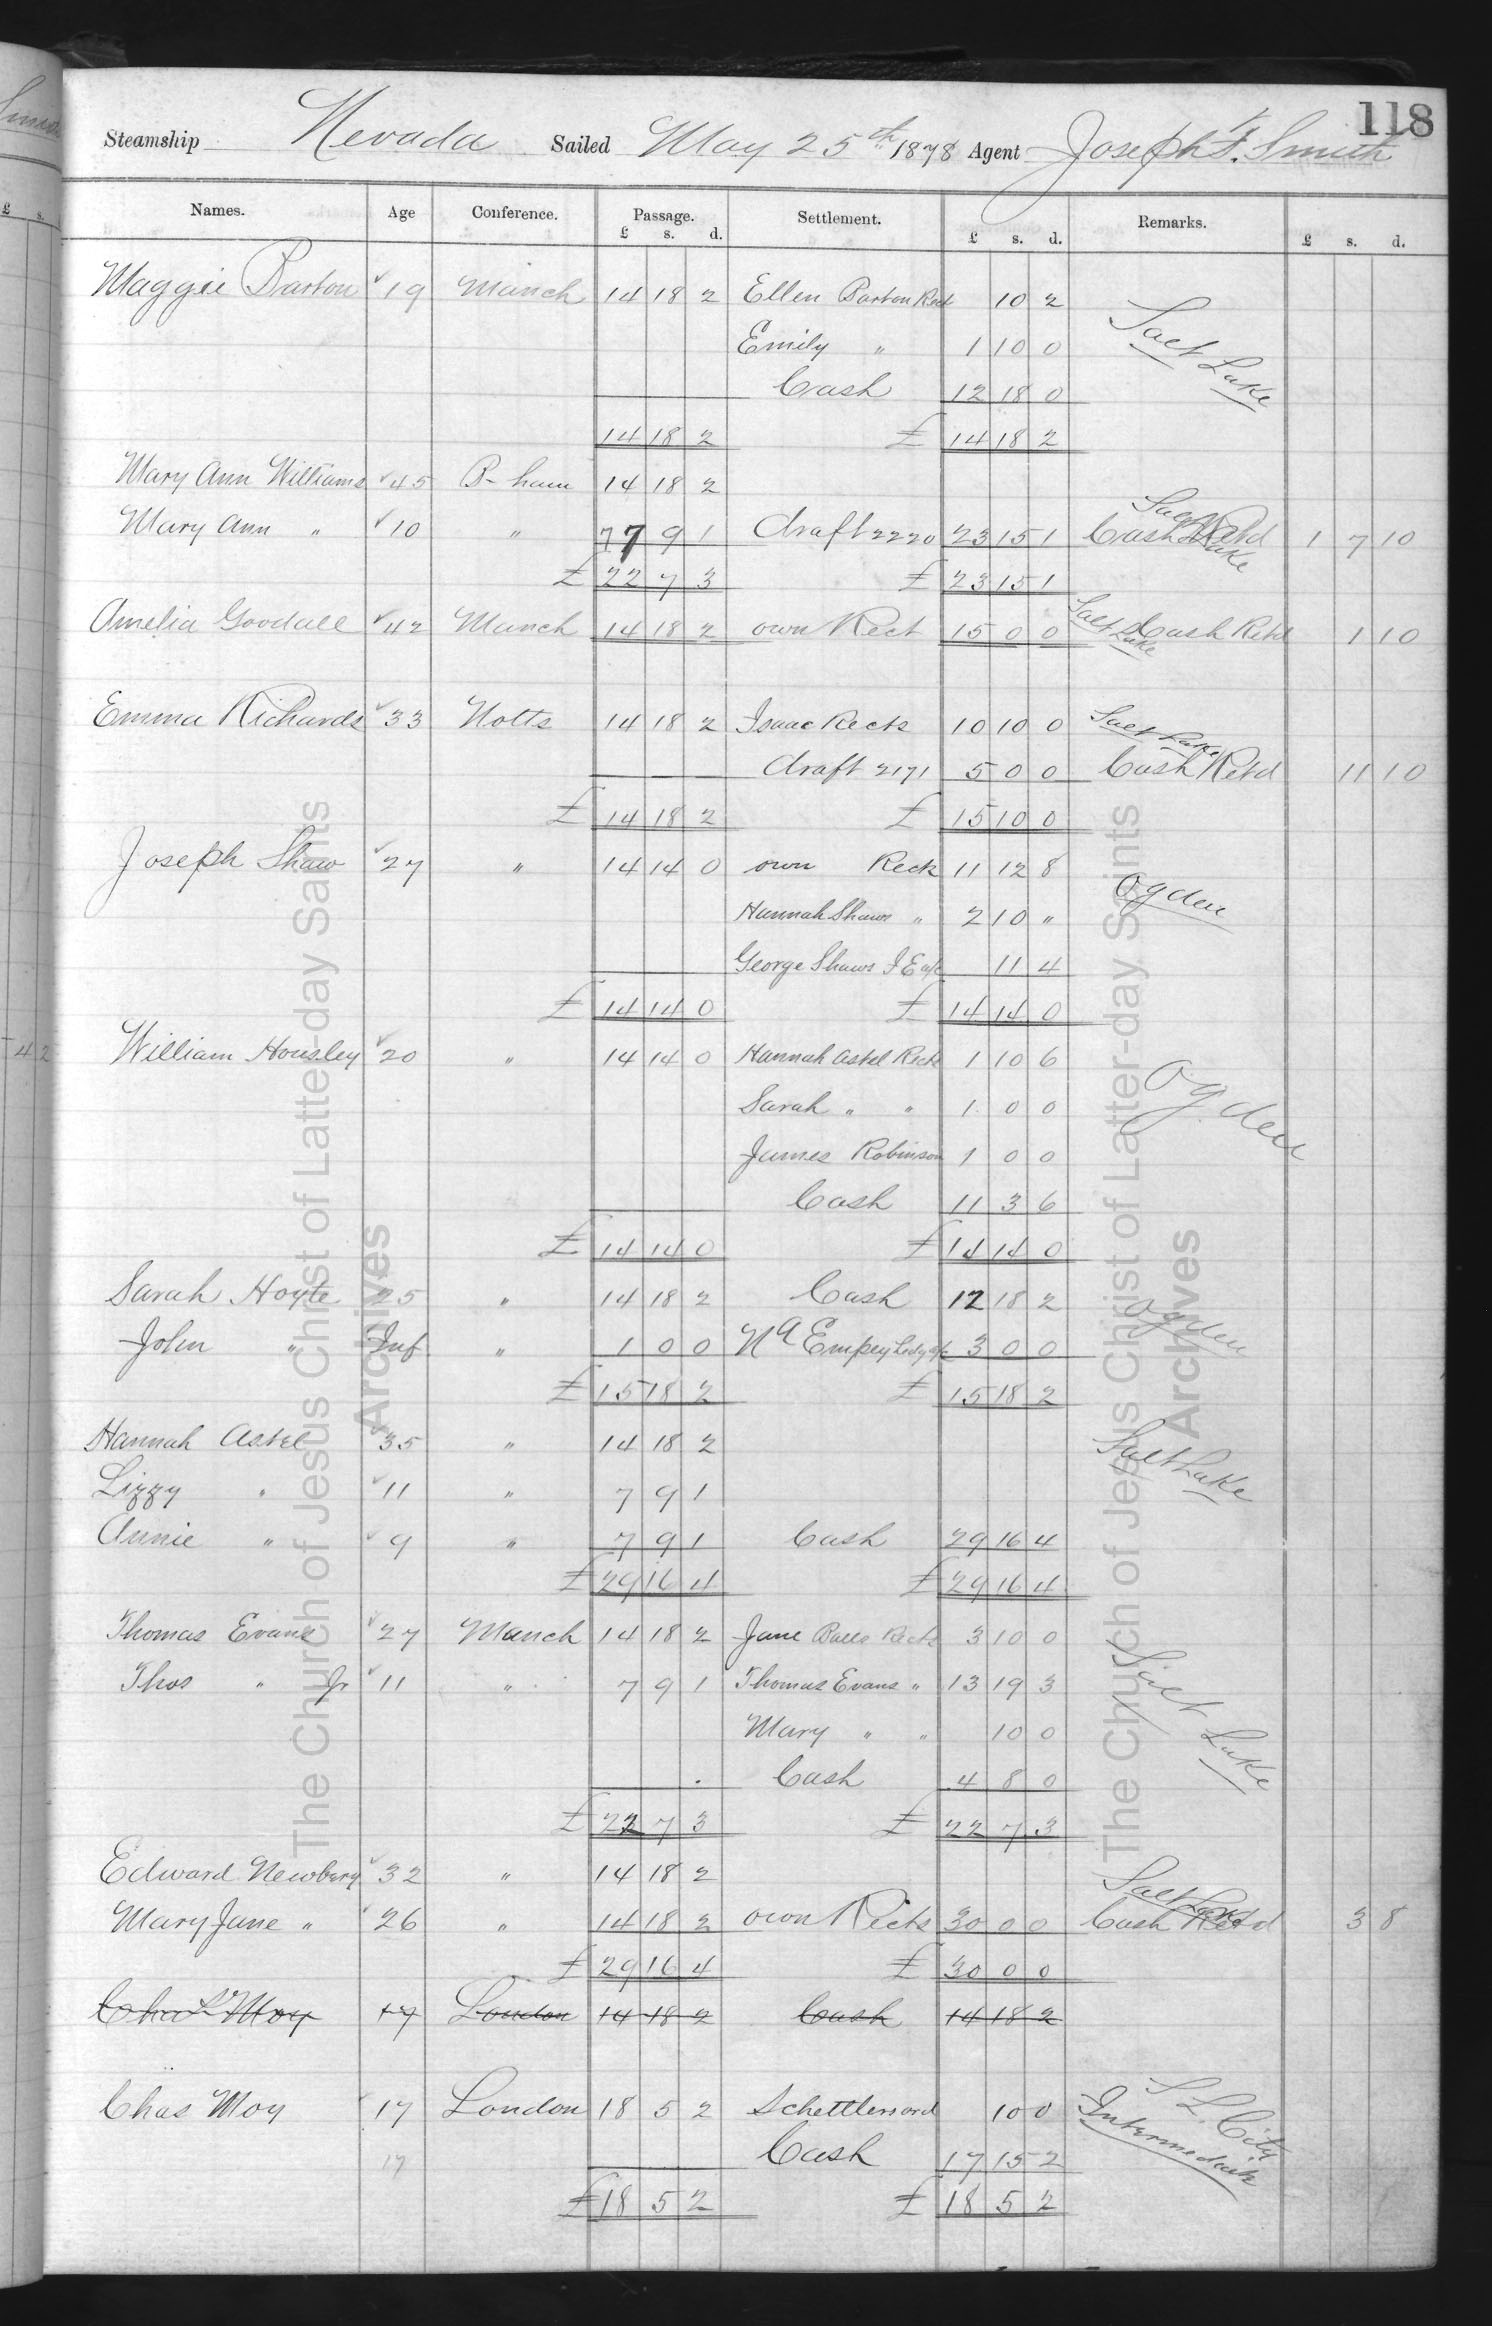 118
Steamship Nevada Sailed May 25th 1878 Agent Joseph F. Smith
Names. Age Conference. Passage. Settlement. Remarks.
£ s. d. £ s. d. £ s. d.
Maggie Barton 19 Manch 14 18 2 Ellen Barton Rect 10 2 Salt Lake
Emily " 1 10 0
Cash 12 18 0
14 18 2 £ 14 18 2
Mary Ann Williams 45 B-ham 14 18 2
Mary Ann " 10 " 7 9 1 draft 2220 23 15 1 Salt Lake Cash Retd 1 7 10
£ 22 7 3 £ 23 15 1
Amelia Goodall 42 Manch 14 18 2 own Rect 15 0 0 Salt Lake Cash Retd 1 10
Emma Richards 33 Notts 14 18 2 Isaac Rects 10 10 0 Salt Lake
draft 2171 5 0 0 Cash Retd 11 10
£ 14 18 2 £ 15 10 0
Joseph Shaw 27 " 14 14 0 own Rects 11 12 8 Ogden
Hannah Shaws " 2 10 "
George Shaws I E a/c 11 4
£ 14 14 0 £ 14 14 0
William Housley 20 " 14 14 0 Hannah Astel Rects 1 10 6 Ogden
Sarah " " 1 0 0
James Robinson 1 0 0
Cash 11 3 6
£ 14 14 0 £ 14 14 0
Sarah Hoyte 25 " 14 18 2 Cash 12 18 2 Ogden
John " Inf " 1 0 0 N A Empey Ledg a/c 3 0 0
£ 15 18 2 £ 15 18 2
Hannah Astel 35 " 14 18 2 Salt Lake
Lizzy " 11 " 7 9 1
Annie " 9 " 7 9 1 Cash 29 16 4
£ 29 16 4 £ 29 16 4
Thomas Evans 27 Manch 14 18 2 Jane Rects 3 10 0 Salt Lake
Thos " Jr 11 " 7 9 1 Thomas Evans " 13 19 3
Mary " " 10 0
Cash 4 8 0
£ 22 7 3 £ 22 7 3
Edward Newbery 32 " 14 18 2 Salt Lake
Mary Jane " 26 " 14 18 2 own Rects 30 0 0 Cash Retd 3 8
£ 29 16 4 £ 30 0 0
Moy 17 London 14 18 2 Cash 14 18 2
Chas Moy 17 London 18 5 2 Schettlers ord 10 0 S L City Intermediate
17 Cash 17 15 2
£ 18 5 2 £ 18 5 2
The Church of Jesus Christ of Latter-day Saints
Archives
The Church of Jesus Christ of Latter-day Saints
Archives